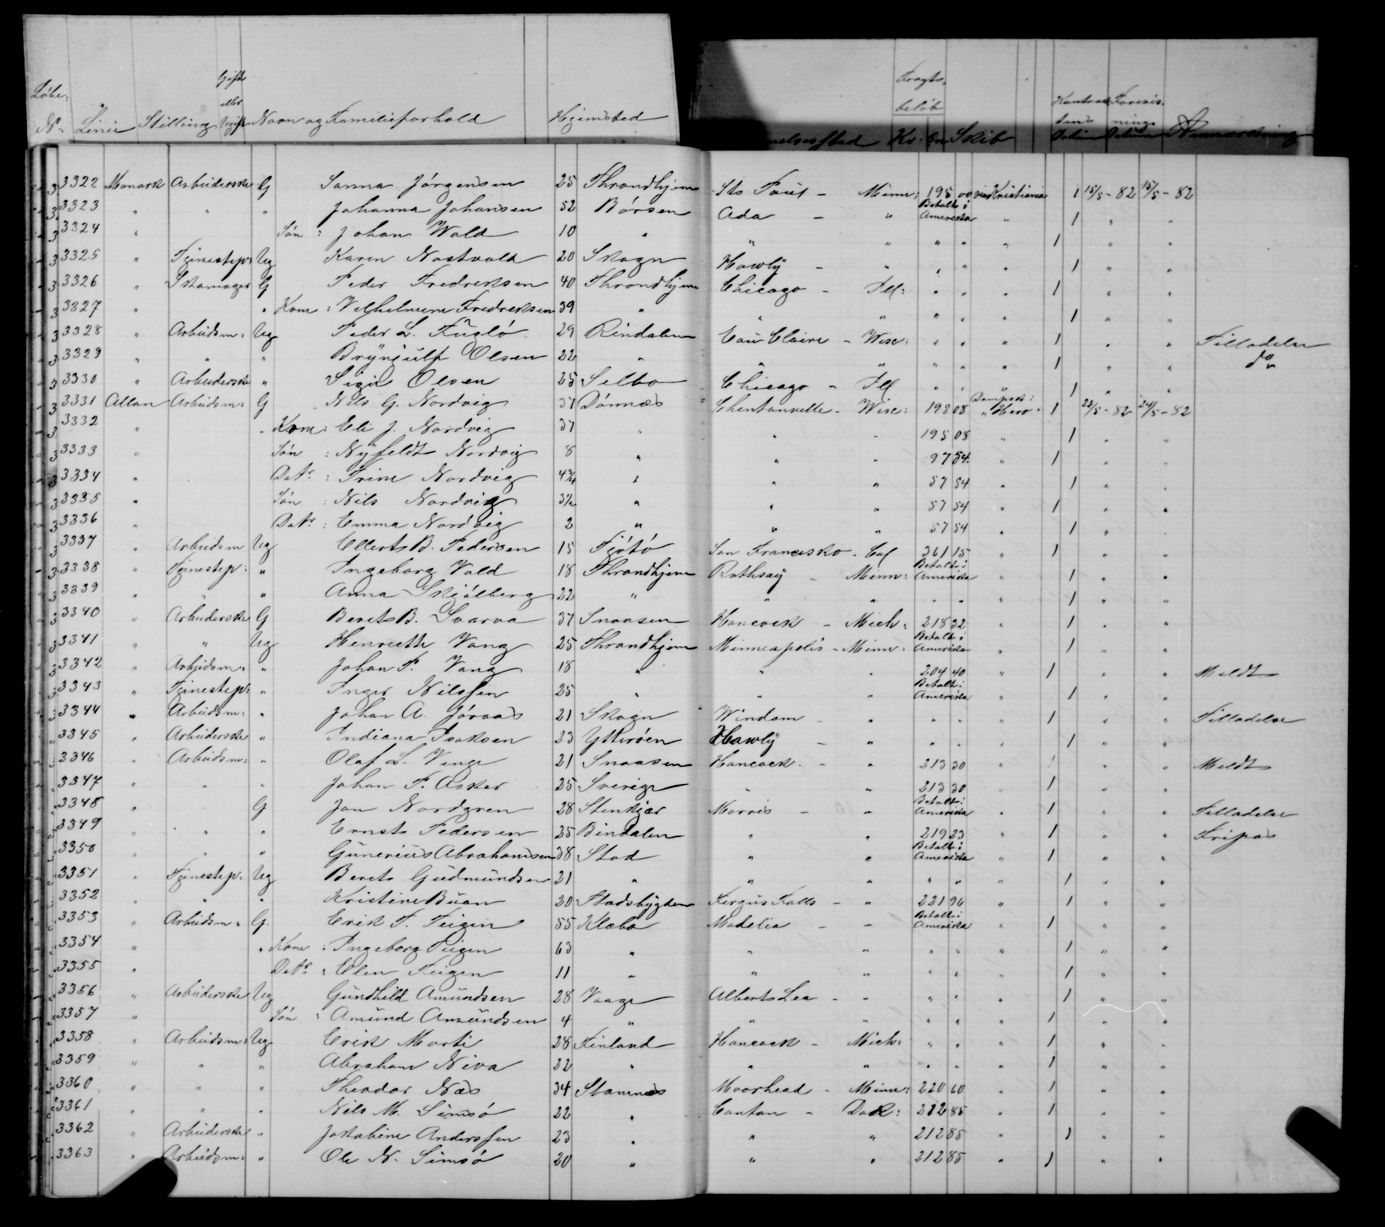 Løbe Nr Linie Stilling Gift eller Ugift Navn og Familieforhold Hjemsted Fragtbeløb Kr. Skib Datum Anmærkning
3322 Monark Arbeiderske G Sanna Jørgensen 25 Throndhjem Sts Paul - Minn: 195 00 Kristiania 1 15/5 - 82 15/5 - 82
3323 " " " Johanna Johansen 52 Børsen Ada - " Betalt i Amerika " 1 " "
3324 " Søn : Johan Wold 10 " " " " " " 1 " "
3325 " Tjenestep: Ug Karen Nostvold 20 Skogn Hawly - " " " " 1 " "
3326 " G Peder Fredreksen 40 Throndhjem Chicago - Ill: " " " 1 " "
3327 " " Kone : Vilhelmine Fredreksen 39 " " " " " " 1 " "
3328 " Arbeidsm: Ug Peder L. Fuglø 29 Rindalen Eau Claire - Wisc: " " " 1 " " Tilladelse
3329 " " " Brynjulf Olsen 22 " " " " " " 1 " " do
3330 " Arbeiderske " Sigri Olsen 25 Selbo Chicago - Ill " " " 1 " "
3331 Allan Arbeidsm: G Nils G. Nordvig 37 Dønnes - Wisc: 198 08 Dampsk: Hero 1 22/5 - 82 24/5 - 82
3332 " " Kone : Ele J. Nordvig 37 " " " 195 08 " 1 " "
3333 " Søn : Nyfeldt Nordvig 8 " " " 97 54 " 1 " "
3334 " Datr : Trine Nordvig 4¾ " " " 57 54 " 1 " "
3335 " Søn : Nils Nordvig 3½ " " " 57 54 " 1 " "
3336 " Datr : Emma Nordvig 2 " " " 57 54 " 1 " "
3337 " Arbeidsm Ug Ellerts B. Pedersen 15 Tjøtø San Francisko - Cal 361 15 " 1 " "
3338 " Tjenestep: " Ingeborg Vold 18 Throndhjem Rothsay - Minn: Betalt i Amerika " 1 " "
3339 " " " Anna Skjølberg 22 " " " " " " 1 " "
3340 " Arbeiderske G Berets B. Svarva 37 Snaasen Hancock - Mich: 218 32 " 1 " "
3341 " " Ug Henrieth Vang 25 Throndhjem Minneapolis - Minn: Betalt i Amerika " 1 " "
3342 " Arbeidsm: " Johan P. Vang 18 " " " 204 40 " 1 " " Meldt
3343 " Tjenestep: " Inger Nilssen 25 " " " Betalt i Amerika " 1 " "
3344 " Arbeidsm: " Johan A. Jøraas 21 Skogn Windom - " " " " 1 " " Tilladelse
3345 " Arbeiderske " Indiana Isaksen 23 Ytterøen Hawly - " " " " 1 " "
3346 " Arbeidsm: " Olaf L. Vinge 21 Snaasen Hancock - " 213 30 " 1 " " Meldt
3347 " " " Johan P. Asker 25 Sverige " " 213 30 " 1 " "
3348 " " G Jon Nordgren 28 Stenkjær Morris - " Betalt i Amerika " 1 " " Tilladelse
3349 " " " Ernsts Pedersen 25 Bindalen " " 219 23 " 1 " " Fripas
3350 " " " Gunerius Abrahamsen 38 Stod " " Betalt i Amerika " 1 " "
3351 " Tjenestep. Ug Berets Gudmundsen 21 " " " " " " 1 " "
3352 " " " Kristine Buan 20 Stadsbygden Fergus Falls - " 221 96 " 1 " "
3353 " Arbeidsm: G. Erik F. Teigen 55 Klæbo Madelia - " Betalt i Amerika " 1 " "
3354 " " Kone : Ingeborg Teigen 63 " " " " " " 1 " "
3355 " Datr : Elen Teigen 11 " " " " " " 1 " "
3356 " Arbeiderske Ug Gundhild Amundsen 28 Vaage Alberts Lea - " " " " 1 " "
3357 " Søn : Amund Amundsen 4 " " " " " " 1 " "
3358 " Arbeidsm: Ug Erik Morti 28 Finland Hancock - Mich: " " " 1 " "
3359 " " " Abraham Niva 22 " " " " " " 1 " "
3360 " " " Theodor Næs 34 Stamnæs Moorhead - Minn: 220 60 " 1 " "
3361 " " " Nils M. Simsø 22 " Canton - Dak: 212 85 " 1 " "
3362 " Arbeiderske " Jakabine Anderssen 23 " " " 212 85 " 1 " "
3363 " Arbeidsm: " Ole N. Simsø 20 " " " 212 85 " 1 " "